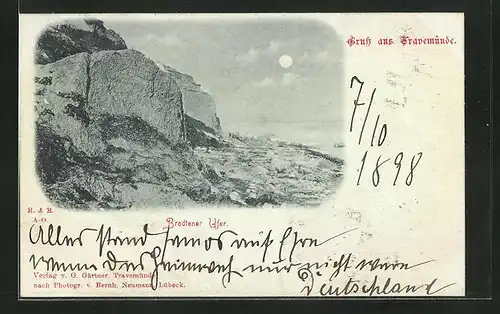 Gruß aus Travemünde.
7/10
1898
R. & B.
A.-O.
Brodtener Ufer.
Alles stand famos auf Ehre
wenn das Heimweh nur nicht wäre
Deutschland
Verlag v. G. Gärtner, Travemünde
nach Photogr. v. Bernh. Neumann, Lübeck.